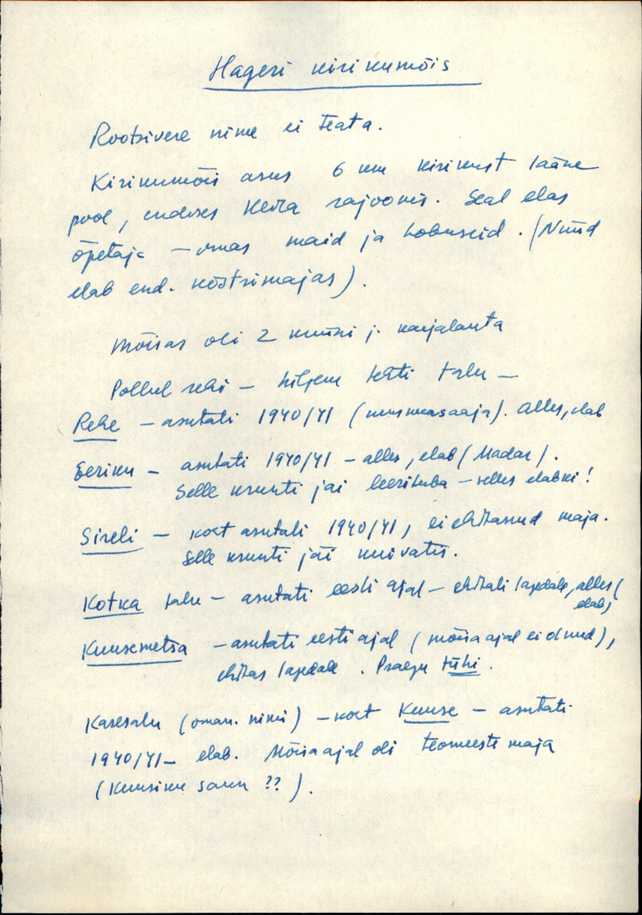 Hageri kirikumõis
Rootsivere nime ei teata.
Kirikumõis asus 6 km kirikust lääne
pool, endises Keila rajoonis. Seal elas
õpetaja – omas maid ja hobuseid. (Nüüd
elab end. köstrimajas).
Mõisas oli 2 küüni j. karjalauta
Põllul rehi – hiljem tehti talu –
Rehe – asutati 1940/41 (uusmaasaaja). alles, elab
Eeriku – asutati 1940/41 – alles, elab (Madar).
Selle krunti jäi leerituba – selles elabki!
Sireli – koht asutati 1940/41, ei ehitanud maja.
Selle krunti jäi kuivatis.
Kotka talu – asutati eesti ajal – ehitati lagedale, alles (
elab)
Kuusemetsa – asutati eesti ajal (mõisa ajal ei olnud),
ehitas lagedale. Praegu tühi.
Karesalu (oman. nimi) – koht Kuuse – asutati
1940/41 – elab. Mõisa ajal oli teomeeste maja
(Kuusiku saun ??).